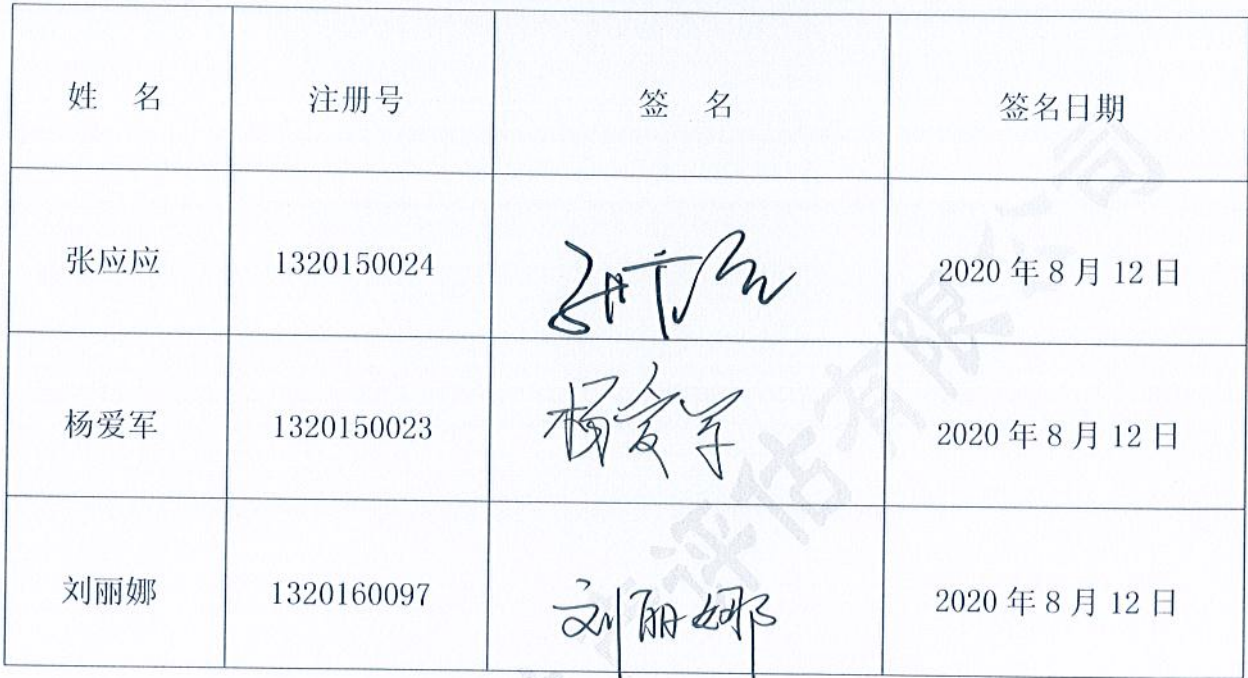 姓 名 注册号 签 名 签名日期
张应应 1320150024 2020年8月12日
杨爱军 1320150023 杨爱军 2020年8月12日
刘丽娜 1320160097 刘丽娜 2020年8月12日
评估有限公司